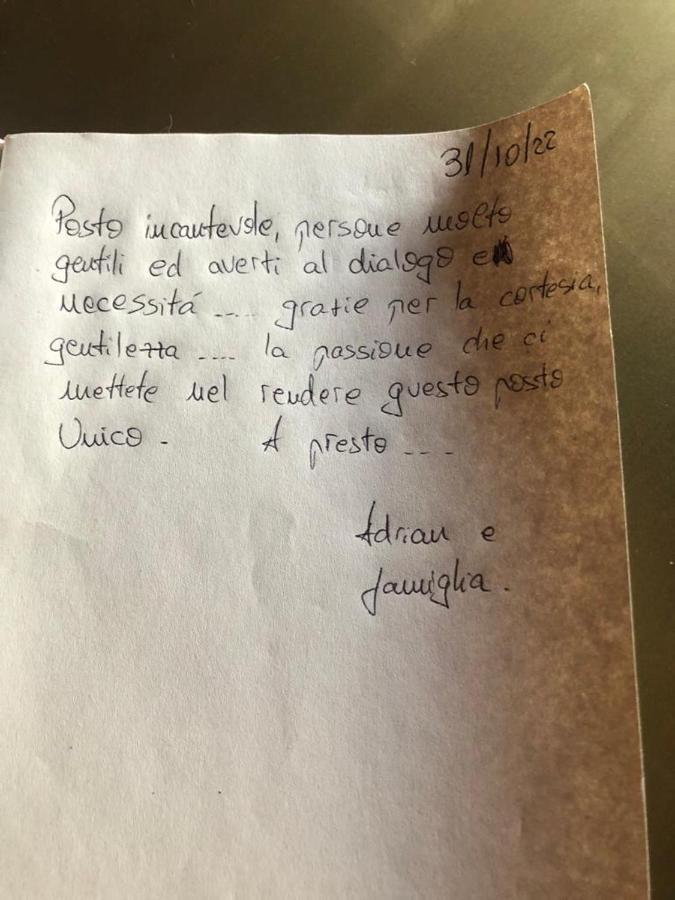 31/10/22
Posto incantevole, persone molto
gentili ed averti al dialogo e
necessitá .... gratie per la cortesia,
gentilezza .... la passione che ci
mettete nel rendere questo posto
Unico. A presto ....
Adrian e
famiglia.